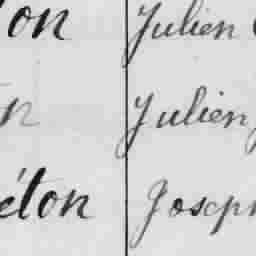 on Julien
n Julien
éton Joseph